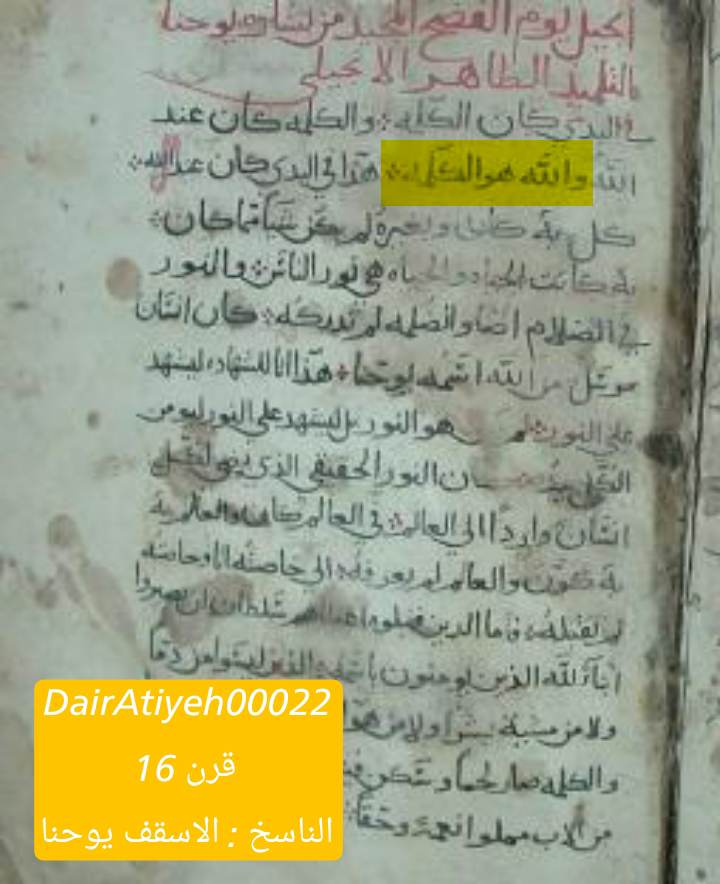 انجيل يوم الفصح المجيد من بشاره يوحنا
التلميذ الطاهر الانجيلي
في البدي كان الكلمه والكلمه كان عند
الله والله هو الكلمه هذا في البدي كان عند الله
كل به كان وبغيره لم يكن شيأ مما كان
به كانت الحياه والحياه هي نور الناس والنور
في الضلام اضا والضلمه لم تدركه كان انسان
مرسل من الله اسمه يوحنا هذا اتا للشهاده ليشهد
علي النور هو النور بل ليشهد علي النور ليومن
الكل به النور الحقيقي الذي يضي لكل
انسان وارداً الي العالم في العالم كان والعالم به
كون والعالم لم يعرفه الى خاصته اتا وخاصته
لم تقبله فاما الذين قبلوه اعطاهم سلطان ان يصيروا
ابنآ لله الذين يومنون باسمه الذين ليسوا من دما
ولا من مشية بشر ولا من
والكلمه صار لحماً وسكن
من الاب مملوا نعمة وحقاً
DairAtiyeh00022
قرن 16
الناسخ : الاسقف يوحنا